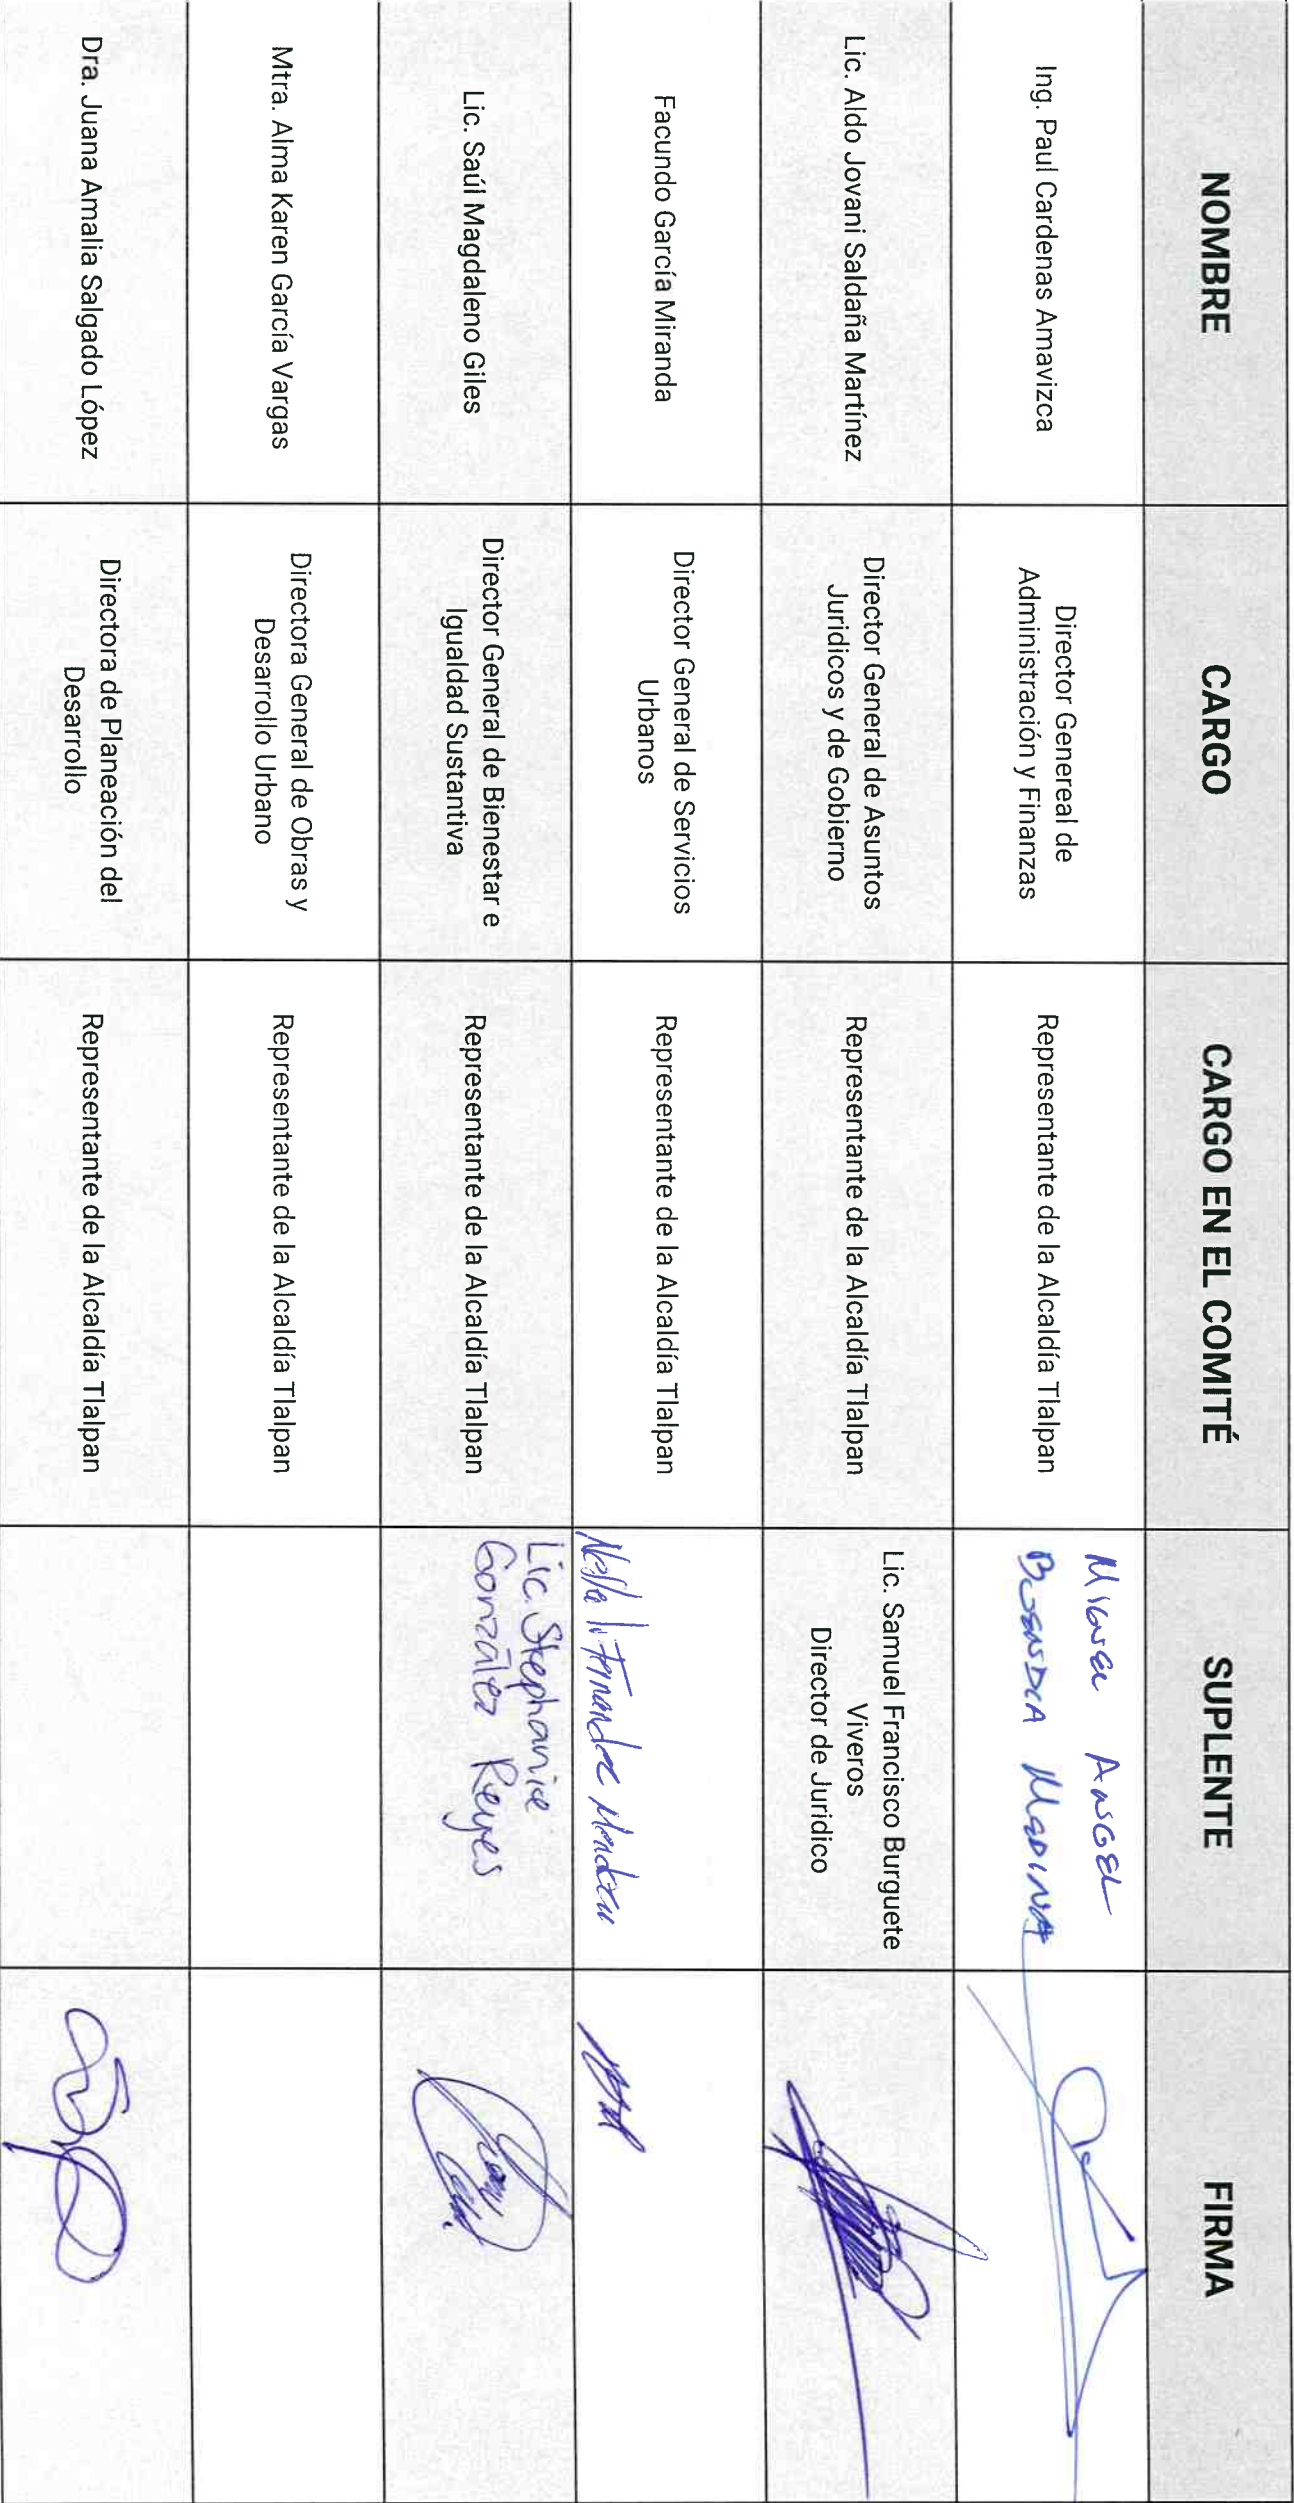 NOMBRE
CARGO
CARGO EN EL COMITÉ
SUPLENTE
FIRMA
Ing. Paul Cardenas Amavizca
Director Genereal de
Administración y Finanzas
Representante de la Alcaldía Tlalpan
MIGUEL ANGEL
MEDINA
Lic. Aldo Jovani Saldaña Martínez
Director General de Asuntos
Juridicos y de Gobierno
Representante de la Alcaldía Tlalpan
Lic. Samuel Francisco Burguete
Viveros
Director de Juridico
Facundo García Miranda
Director General de Servicios
Urbanos
Representante de la Alcaldía Tlalpan
Lic. Saúl Magdaleno Giles
Director General de Bienestar e
Igualdad Sustantiva
Representante de la Alcaldía Tlalpan
Lic. Stephanie
González Reyes
Mtra. Alma Karen García Vargas
Directora General de Obras y
Desarrollo Urbano
Representante de la Alcaldía Tlalpan
Dra. Juana Amalia Salgado López
Directora de Planeación del
Desarrollo
Representante de la Alcaldía Tlalpan